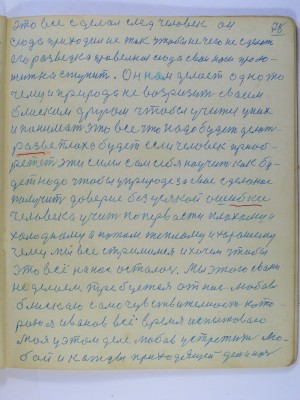 78
это все сделал след человек он
сюда приходил не так чтобы нечего не сделат
его разведка провеликая сюда свои ноги проло-
жит и ступит. Он нам делает одно то
чему и природа не возразит своем
близким другом чтобы учится у них
и понимат это все что надо будет дент-
разве плохо будет если человек приоб-
ретет эти сили сам себя научит как бу-
дет надо чтобы у природе за свое сделаное
получит доверие без всякой ошибки
человека учит по первости плохому и
холодному а потом теплому и хорошему
чему мы все стремимся и хочем чтобы
это всё на нас осталос. Мы этого своги
не делаем требуется от нас любов
близкаю само чувствителност кото-
рая иванов всё время испытовает
моя у этом деле любов устретит лю-
бой и каждый приходящей денник